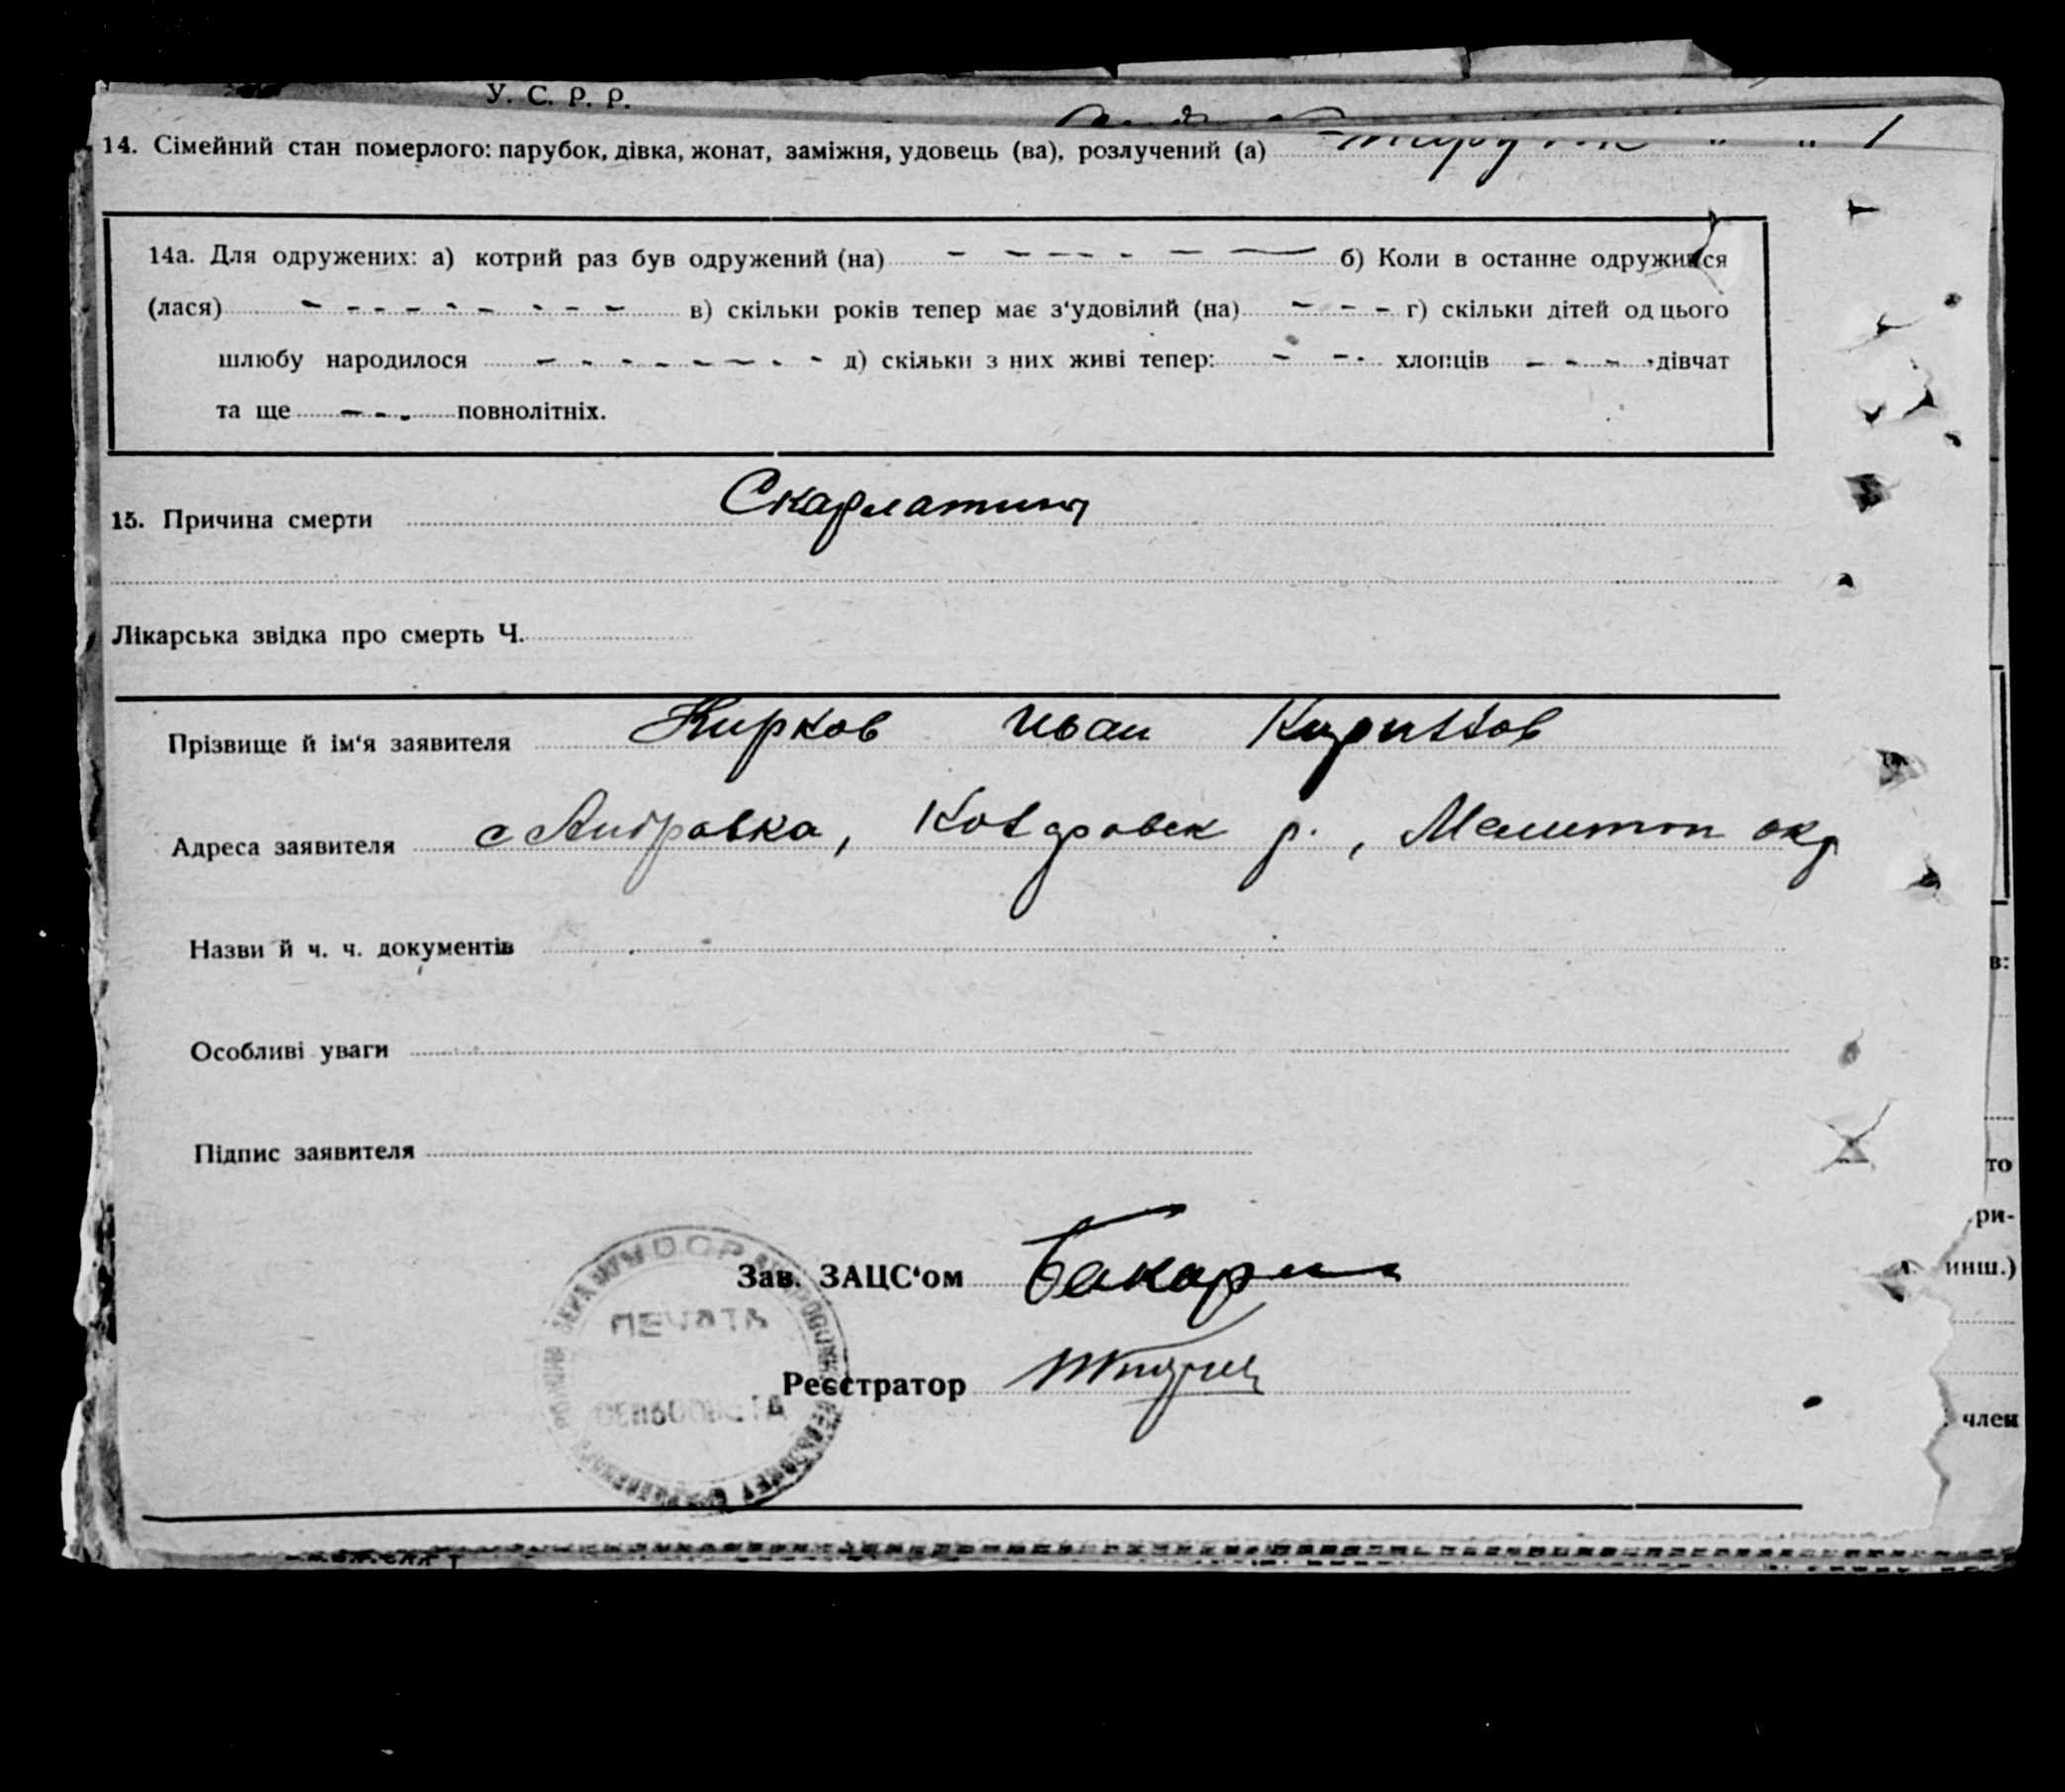 У. С. Р. Р.
14. Сімейний стан померлого: парубок, дівка, жонат, заміжня, удовець (ва), розлучений (а)
14а. Для одружених: а) котрий раз був одружений (на) б) Коли в останне одружився
(лася) в) скільки років тепер має з'удовілий (на) г) скільки дітей од цього
шлюбу народилося д) скільки з них живі тепер: хлопців дівчат
та ще повнолітніх.
15. Причина смерти Скарлатина
Лікарська звідка про смерть Ч.
Прізвище й ім'я заявителя Кирков Иван
Адреса заявителя с р., Мелитоп окр
Назви й ч. ч. документів
Особливі уваги
Підпис заявителя
Зав. ЗАЦС'ом
ПЕЧАТЬ
Реєстратор
СЕЛЬСОВЕТА
в:
то
ри-
инш.)
член